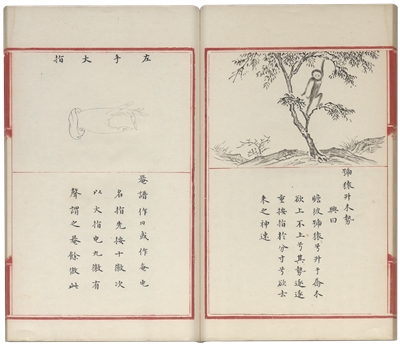 啼猿升木勢
興曰
瞻彼啼猿兮升于喬木
欲上不上兮其勢逐逐
重按指於分寸兮欲去
來之神速
左手大指
罨譜作曰或作奄电
名指先按十徽次
以大指电九徽有
聲謂之罨餘倣此